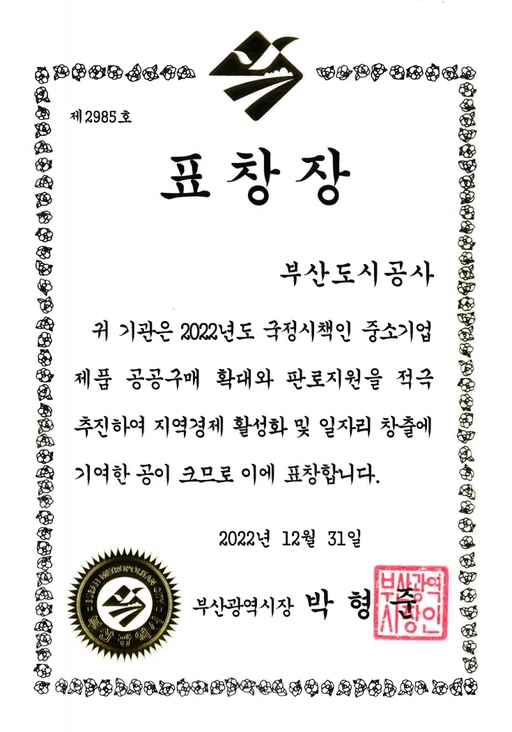 제2985호
표창장
부산도시공사
귀 기관은 2022년도 국정시책인 중소기업
제품 공공구매 확대와 판로지원을 적극
추진하여 지역경제 활성화 및 일자리 창출에
기여한 공이 크므로 이에 표창합니다.
2022년 12월 31일
BUSAN METROPOLITAN CITY
부산광역시
부산광역시장 박형준
부산광역
시장인